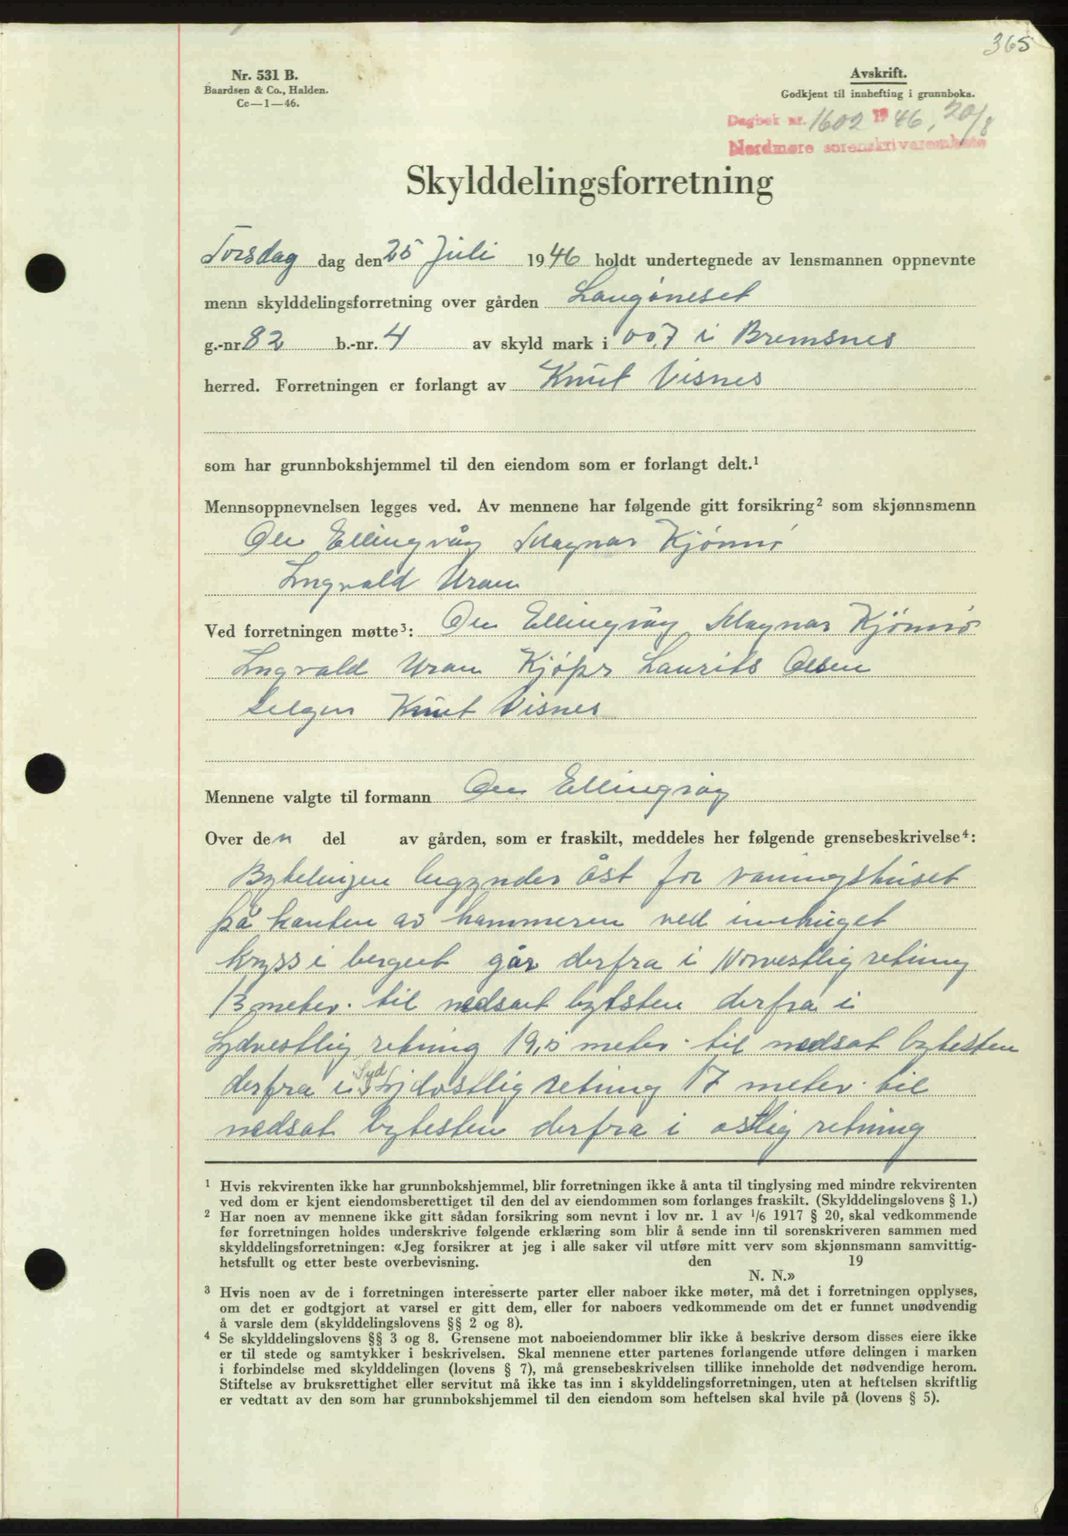 365
Nr. 531 B.
Baardsen & Co., Halden.
Cc—1—46.
Avskrift.
Godkjent til innhefting i grunnboka.
Dagbok nr. 1602 19 46, 20/8
Nordmøre sorenskriverembete
Skylddelingsforretning
Torsdag dag den 25 Juli 1946 holdt undertegnede av lensmannen oppnevnte
menn skylddelingsforretning over gården Langöneset
g.-nr. 82 b.-nr. 4 av skyld mark i 00,7 i Bremsnes
herred. Forretningen er forlangt av Knut Visnes
som har grunnbokshjemmel til den eiendom som er forlangt delt.¹
Mennsoppnevnelsen legges ved. Av mennene har følgende gitt forsikring² som skjønnsmenn
Ole Ellingvåg Magnar Kjönnö
Ingvald Uran
Ved forretningen møtte³: Ole Ellingvåg Magnar Kjönnö
Ingvald Uran Kjöper Laurits Olsen
Selger Knut Visnes
Mennene valgte til formann Ole Ellingvåg
Over den del av gården, som er fraskilt, meddeles her følgende grensebeskrivelse⁴:
Bytelinjen begynder åst for våningshuset
på kanten av hammeren ved innhuget
kryss i berget går derfra i Norvestlig retning
13 meter. til nedsat bytsten derfra i
Sydvestlig retning 19,5 meter. til nedsat bytesten
derfra i Syd Sydostlig retning 17 meter. til
nedsat bytesten derfra i ostlig retning
¹ Hvis rekvirenten ikke har grunnbokshjemmel, blir forretningen ikke å anta til tinglysing med mindre rekvirenten
ved dom er kjent eiendomsberettiget til den del av eiendommen som forlanges fraskilt. (Skylddelingslovens § 1.)
² Har noen av mennene ikke gitt sådan forsikring som nevnt i lov nr. 1 av 1/6 1917 § 20, skal vedkommende
før forretningen holdes underskrive følgende erklæring som blir å sende inn til sorenskriveren sammen med
skylddelingsforretningen: «Jeg forsikrer at jeg i alle saker vil utføre mitt verv som skjønnsmann samvittig-
hetsfullt og etter beste overbevisning. den 19
N. N.»
³ Hvis noen av de i forretningen interesserte parter eller naboer ikke møter, må det i forretningen opplyses,
om det er godtgjort at varsel er gitt dem, eller for naboers vedkommende om det er funnet unødvendig
å varsle dem (skylddelingslovens §§ 2 og 8).
⁴ Se skylddelingslovens §§ 3 og 8. Grensene mot naboeiendommer blir ikke å beskrive dersom disses eiere ikke
er til stede og samtykker i beskrivelsen. Skal mennene etter partenes forlangende utføre delingen i marken
i forbindelse med skylddelingen (lovens § 7), må grensebeskrivelsen tillike inneholde det nødvendige herom.
Stiftelse av bruksrettighet eller servitut må ikke tas inn i skylddelingsforretningen, uten at heftelsen skriftlig
er vedtatt av den som har grunnbokshjemmel til den eiendom som heftelsen skal hvile på (lovens § 5).